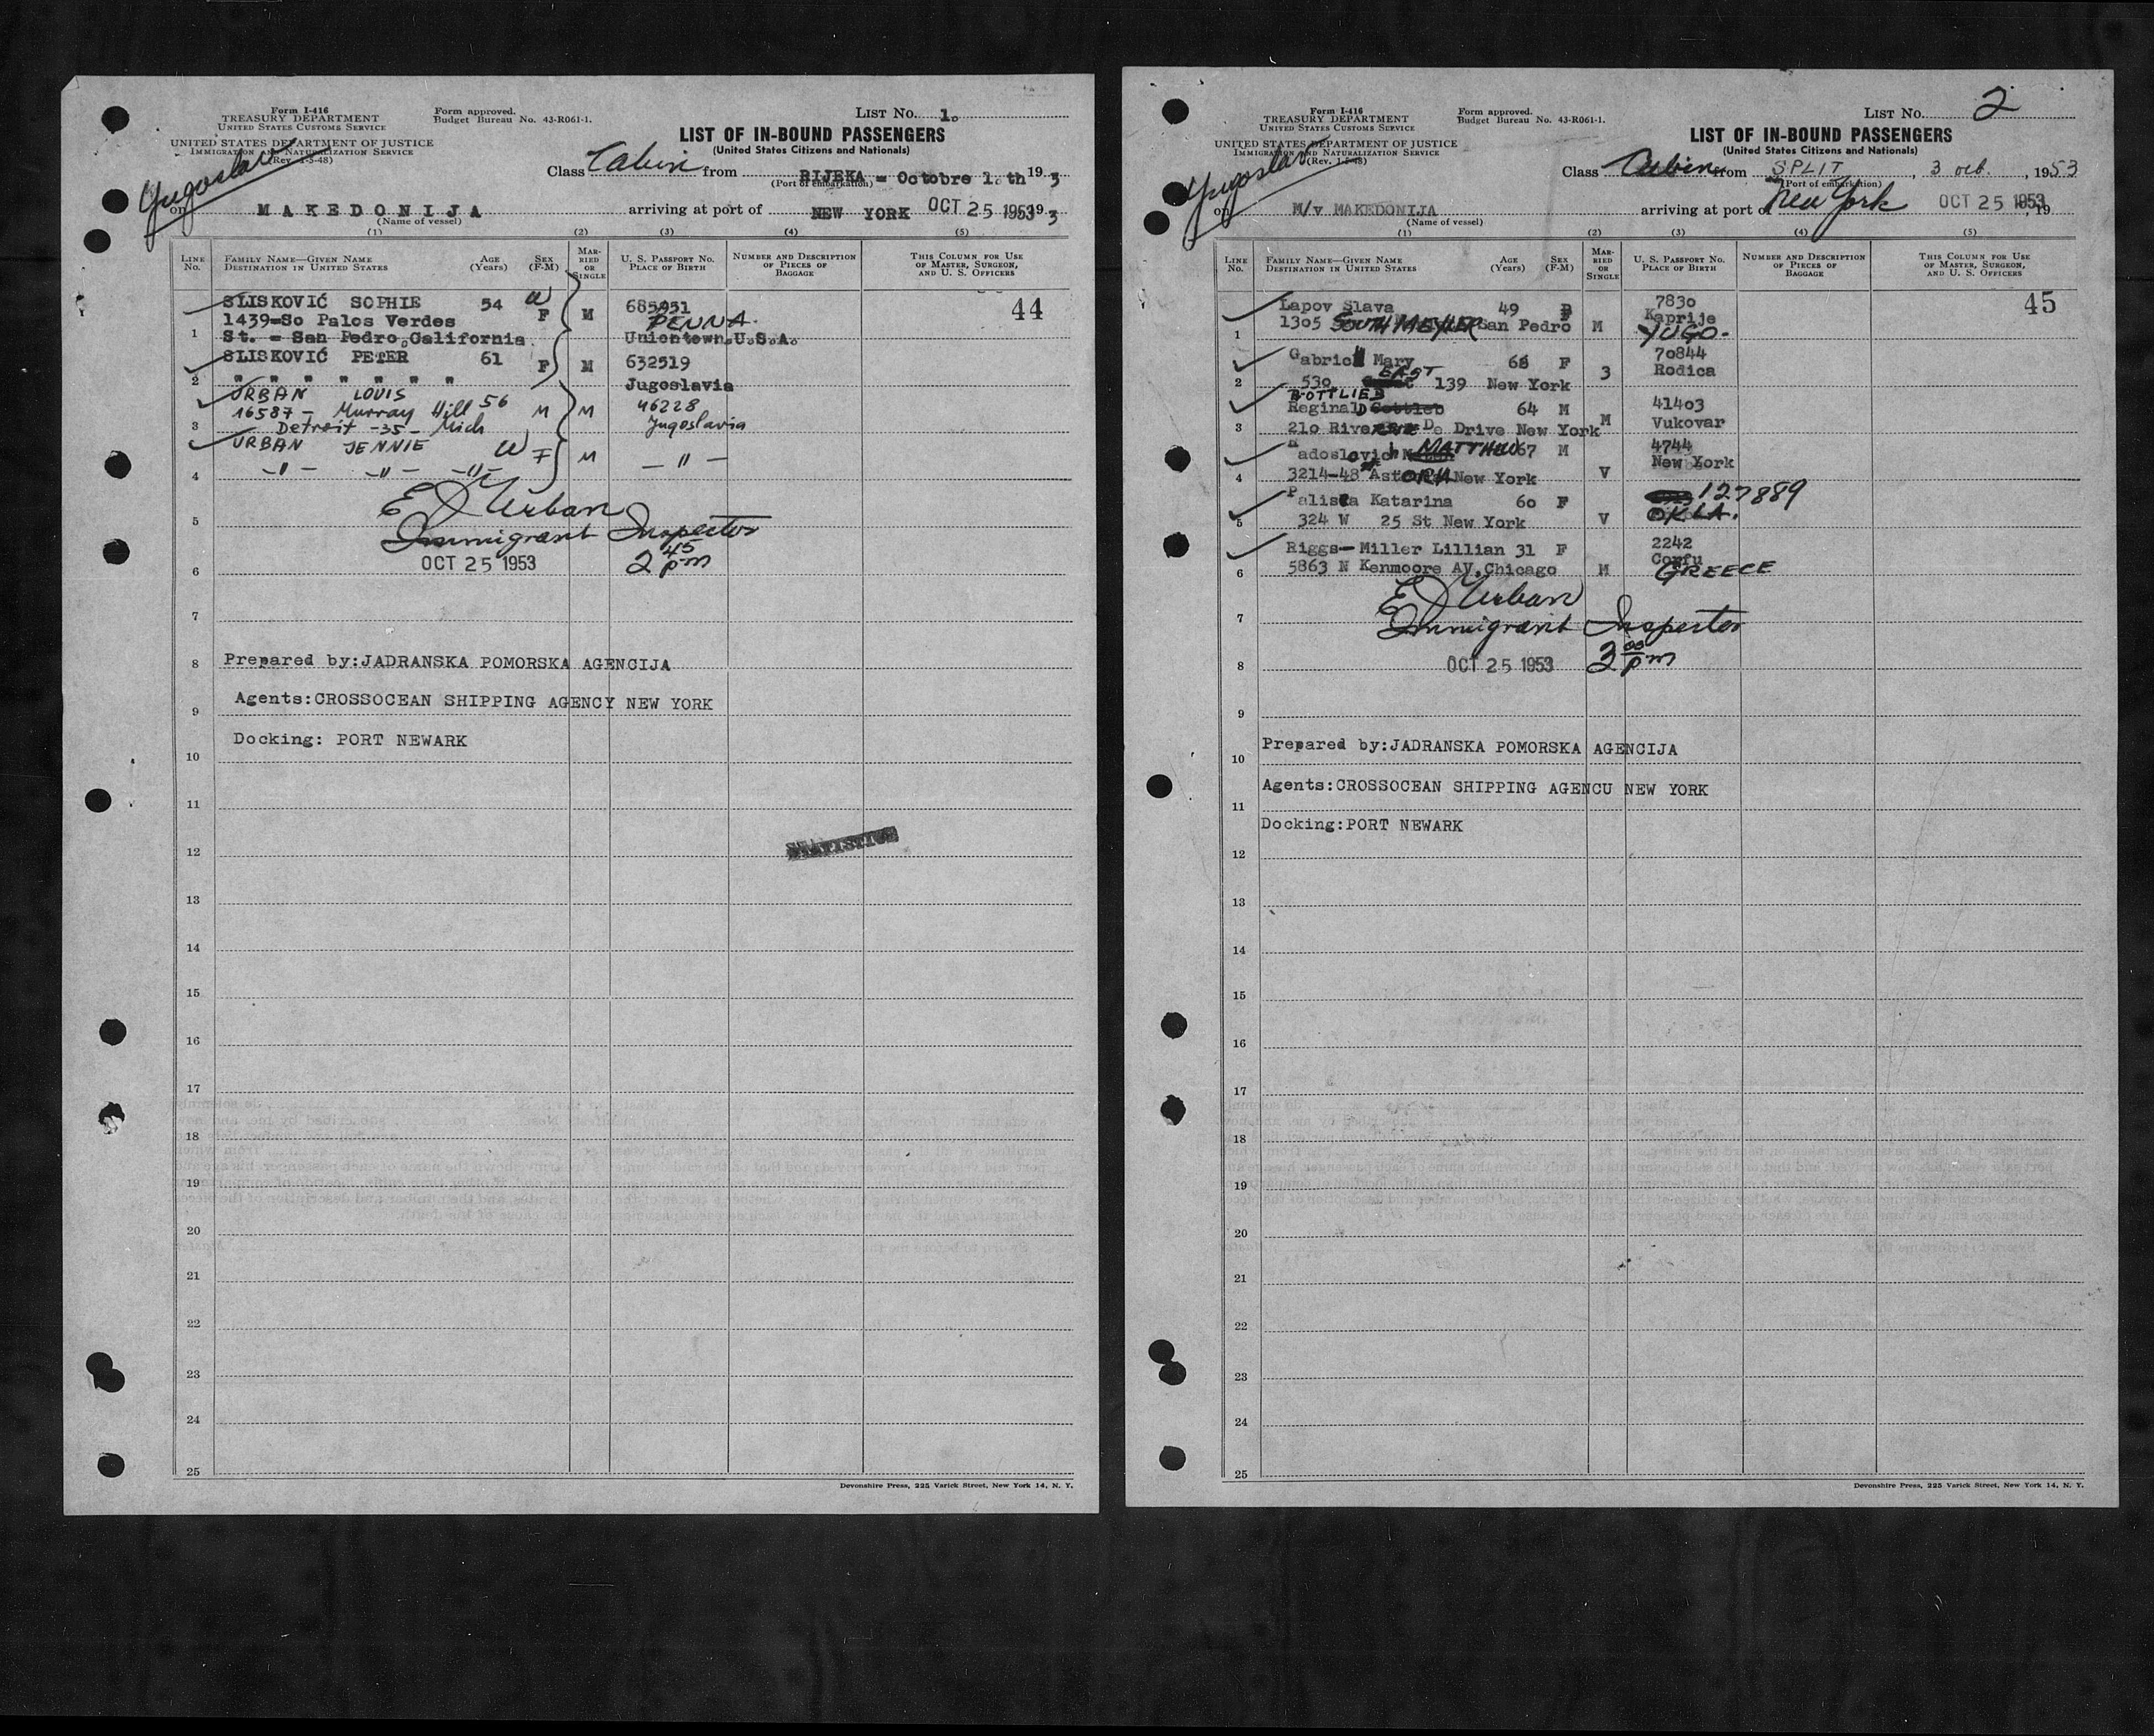 Form I-416
TREASURY DEPARTMENT
UNITED STATES CUSTOMS SERVICE
UNITED STATES DEPARTMENT OF JUSTICE
IMMIGRATION AND NATURALIZATION SERVICE
(Rev. 1-5-48)
Form approved.
Budget Bureau No. 43-R061-1.
LIST NO. 1.
LIST OF IN-BOUND PASSENGERS
(United States Citizens and Nationals)
Yugoslav
Class Cabin from RIJEKA - Octobre 1.th 1953
(Port of embarkation)
on MAKEDONIJA arriving at port of NEW YORK OCT 25 1953 193
(Name of vessel)
(1) (2) (3) (4) (5)
LINE NO. FAMILY NAME—GIVEN NAME DESTINATION IN UNITED STATES AGE (Years) SEX (F-M) MARRIED OR SINGLE U. S. PASSPORT NO. PLACE OF BIRTH NUMBER AND DESCRIPTION OF PIECES OF BAGGAGE THIS COLUMN FOR USE OF MASTER, SURGEON, AND U. S. OFFICERS
SLISKOVIĆ SOPHIE 54 W F M 44
1439=So Palos Verdes PENNA.
1 St. - San Pedro, California. Uniontown,U.S.A.
SLISKOVIĆ PETER 61 F M 632519
2 " " " " " " " Jugoslavia
URBAN LOUIS 56 M M 46228
16587 - Murray Hill Jugoslavia
3 Detroit -35- Mich
URBAN JENNIE W F M — " —
4 -"- -"- -"-
E J Urban
5 Immigrant Inspector
6 OCT 25 1953 2 45 pm
7
8 Prepared by:JADRANSKA POMORSKA AGENCIJA
9 Agents:CROSSOCEAN SHIPPING AGENCY NEW YORK
10 Docking: PORT NEWARK
11
12
STATISTICS
13
14
15
16
17
18
19
20
21
22
23
24
25
Devonshire Press, 225 Varick Street, New York 14, N. Y.
Form I-416
TREASURY DEPARTMENT
UNITED STATES CUSTOMS SERVICE
UNITED STATES DEPARTMENT OF JUSTICE
IMMIGRATION AND NATURALIZATION SERVICE
(Rev. 1-5-48)
Form approved.
Budget Bureau No. 43-R061-1.
LIST NO. 2
LIST OF IN-BOUND PASSENGERS
(United States Citizens and Nationals)
Yugoslav
Class Cabin from SPLIT, 3 oct., 1953
(Port of embarkation)
on M/v MAKEDONIJA arriving at port of New York OCT 25 1953, 19
(Name of vessel)
(1) (2) (3) (4) (5)
LINE NO. FAMILY NAME—GIVEN NAME DESTINATION IN UNITED STATES AGE (Years) SEX (F-M) MARRIED OR SINGLE U. S. PASSPORT NO. PLACE OF BIRTH NUMBER AND DESCRIPTION OF PIECES OF BAGGAGE THIS COLUMN FOR USE OF MASTER, SURGEON, AND U. S. OFFICERS
Lapov Slava 49 F 7830 45
Kaprije
1 1305 SOUTH MEYLER San Pedro M YUGO-
Mary F 70844
2 530 EAST 139 New York 3 Rodica
BOTTLIEB
Reginald 64 M 41403
3 210 Drive New York M Vukovar
MATTHEW 67 M 4744
4 3214-48 New York V New York
Palisca Katarina 60 F 127889
5 324 W 25 St New York V OKLA.
Riggs-Miller Lillian 31 F 2242
Corfu
6 5863 N Kenmoore AV,Chicago M GREECE
E J Urban
7 Immigrant Inspector
8 OCT 25 1953 3 00 pm
9
10 Prepared by:JADRANSKA POMORSKA AGENCIJA
11 Agents:CROSSOCEAN SHIPPING AGENCU NEW YORK
Docking:PORT NEWARK
12
13
14
15
16
17
18
19
20
21
22
23
24
25
Devonshire Press, 225 Varick Street, New York 14, N. Y.